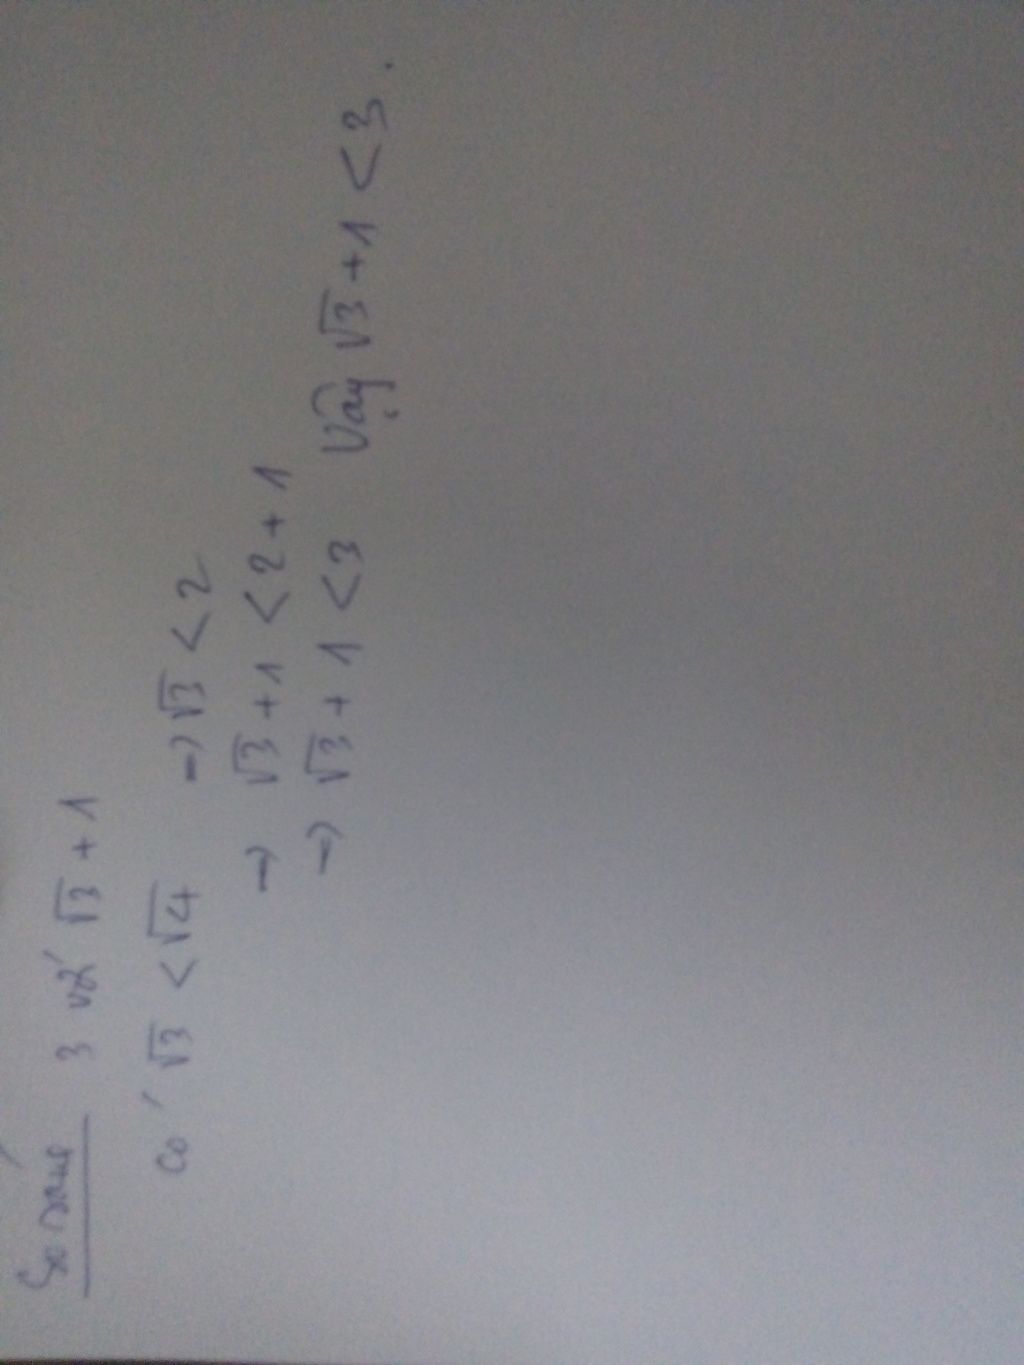 So sánh 3 với √3 + 1
có √3 < √4 → √3 < 2
→ √3 + 1 < 2 + 1
→ √3 + 1 < 3 Vậy √3 + 1 < 3.